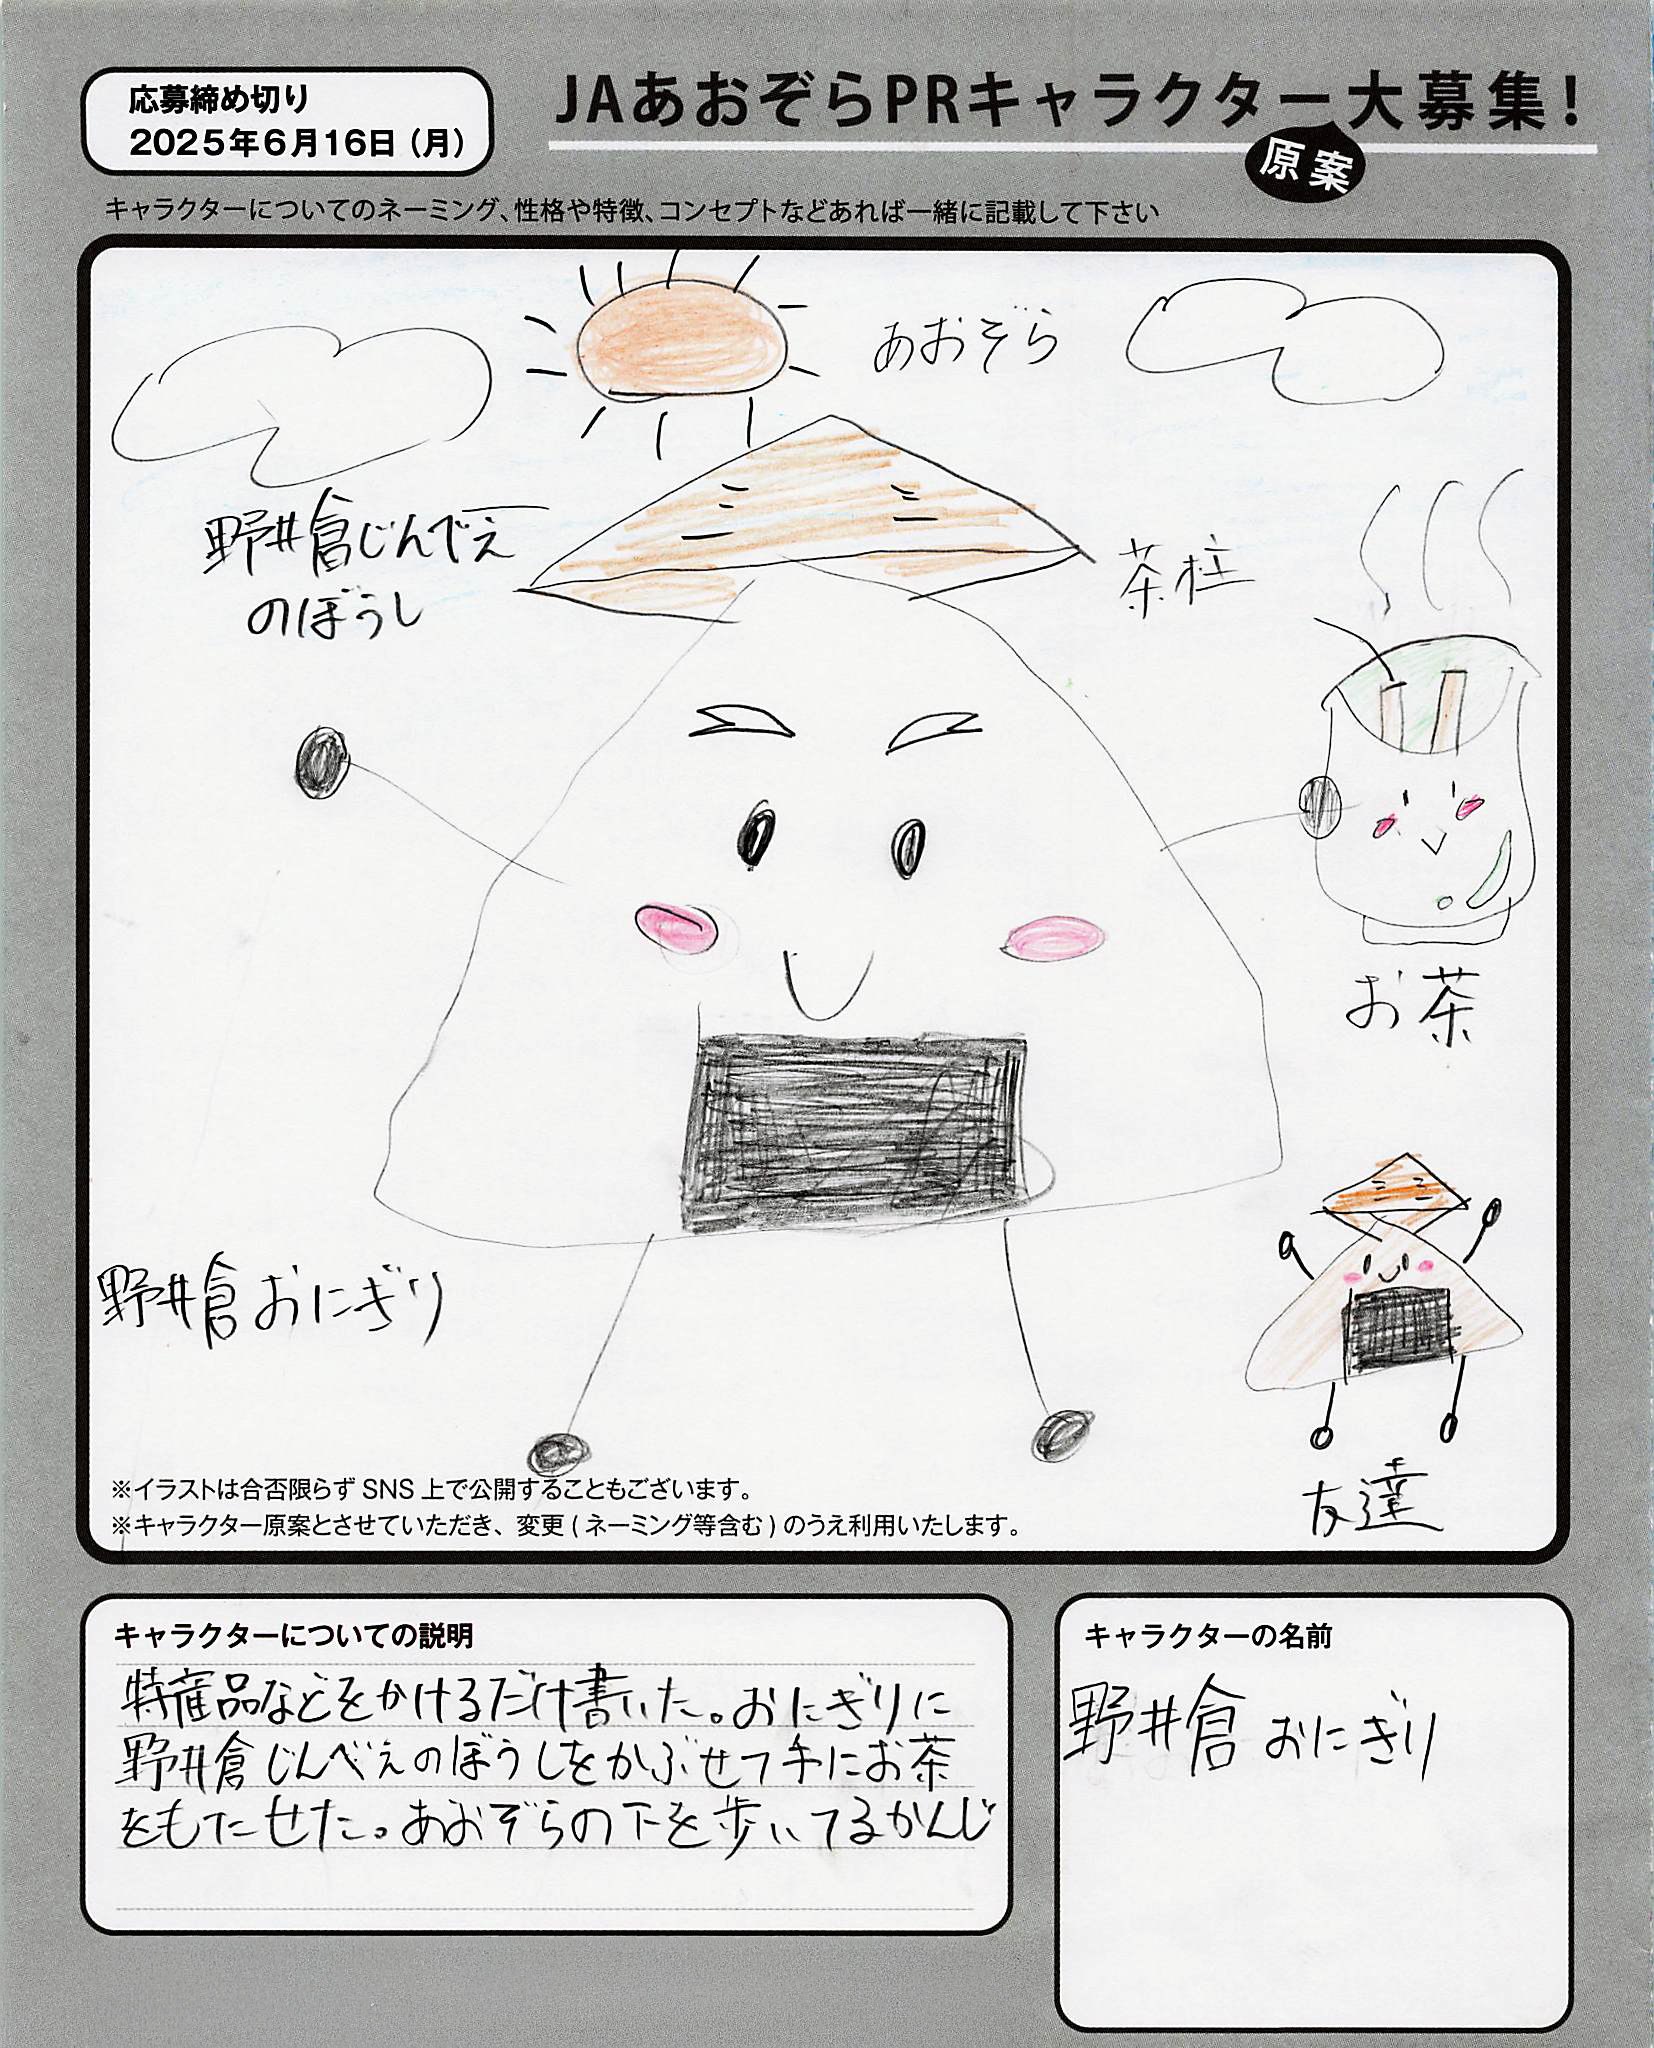 応募締め切り
2025年6月16日（月）
JAあおぞらPRキャラクター大募集！
原案
キャラクターについてのネーミング、性格や特徴、コンセプトなどあれば一緒に記載して下さい
あおぞら
野井倉じんべえ
のぼうし
茶柱
お茶
野井倉おにぎり
友達
※イラストは合否限らずSNS上で公開することもございます。
※キャラクター原案とさせていただき、変更(ネーミング等含む)のうえ利用いたします。
キャラクターについての説明
特産品などをかけるだけ書いた。おにぎりに
野井倉じんべえのぼうしをかぶせて手にお茶
をもたせた。あおぞらの下を歩いてるかんじ
キャラクターの名前
野井倉おにぎり